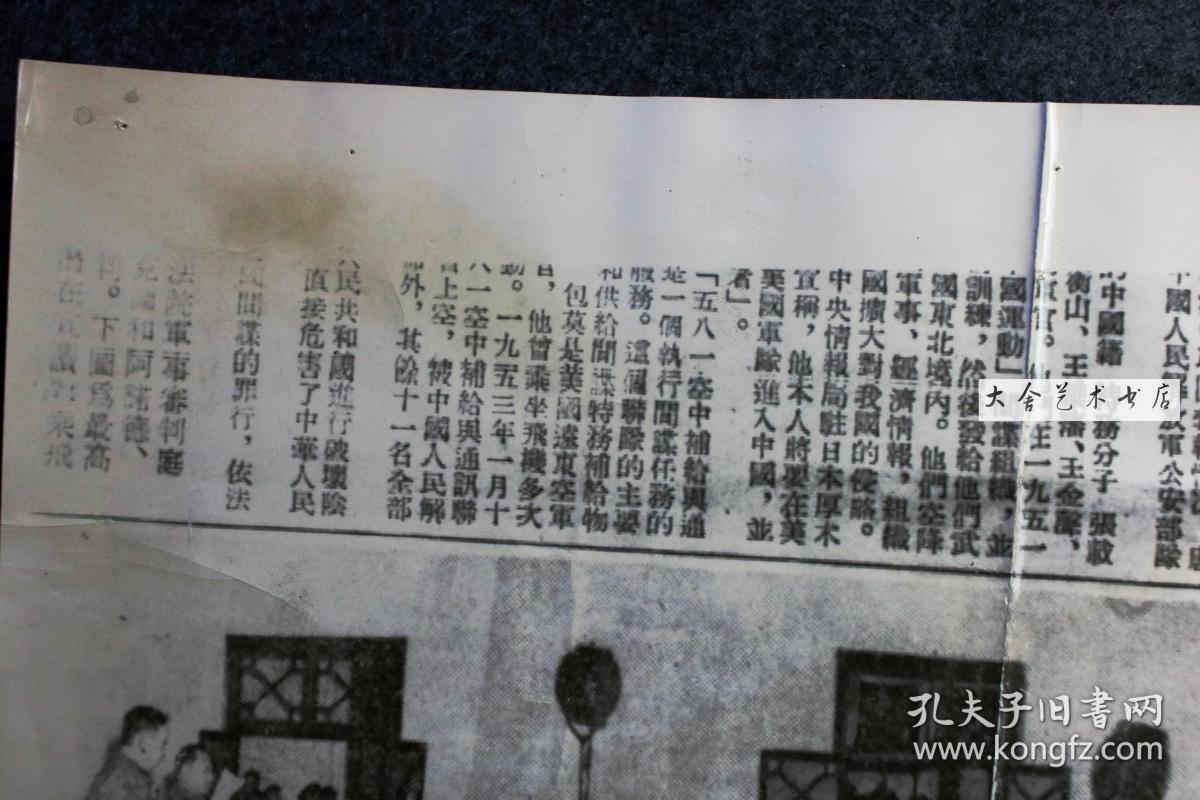 中國人民解放軍公安部隊
的中國籍 特務分子 張載
衡山、王 藩、王金聲，
官。 在一九五一
國運動」 諜組織，並
訓練，然後發給他們武
國東北境內。他們空降
軍事、經濟情報，組織
國擴大對我國的侵略。
中央情報局駐日本厚木
宣稱，他本人將要在美
美國軍隊進入中國，並
者」。
「五八一空中補給與通
是一個執行間諜任務的
服務。這個聯隊的主要
和供給間諜特務補給物
包莫是美國遠東空軍
他曾乘坐飛機多次
動。一九五三年一月十
八一空中補給與通訊聯
上空，被中國人民解
部外，其餘十一名全部
人民共和國進行破壞陰
直接危害了中華人民
民間諜的罪行，依法
法院軍事審判庭
克國和阿諾德、
判。下圖爲最高
乘飛
大舍艺术书店
孔夫子旧書网
www.kongfz.com